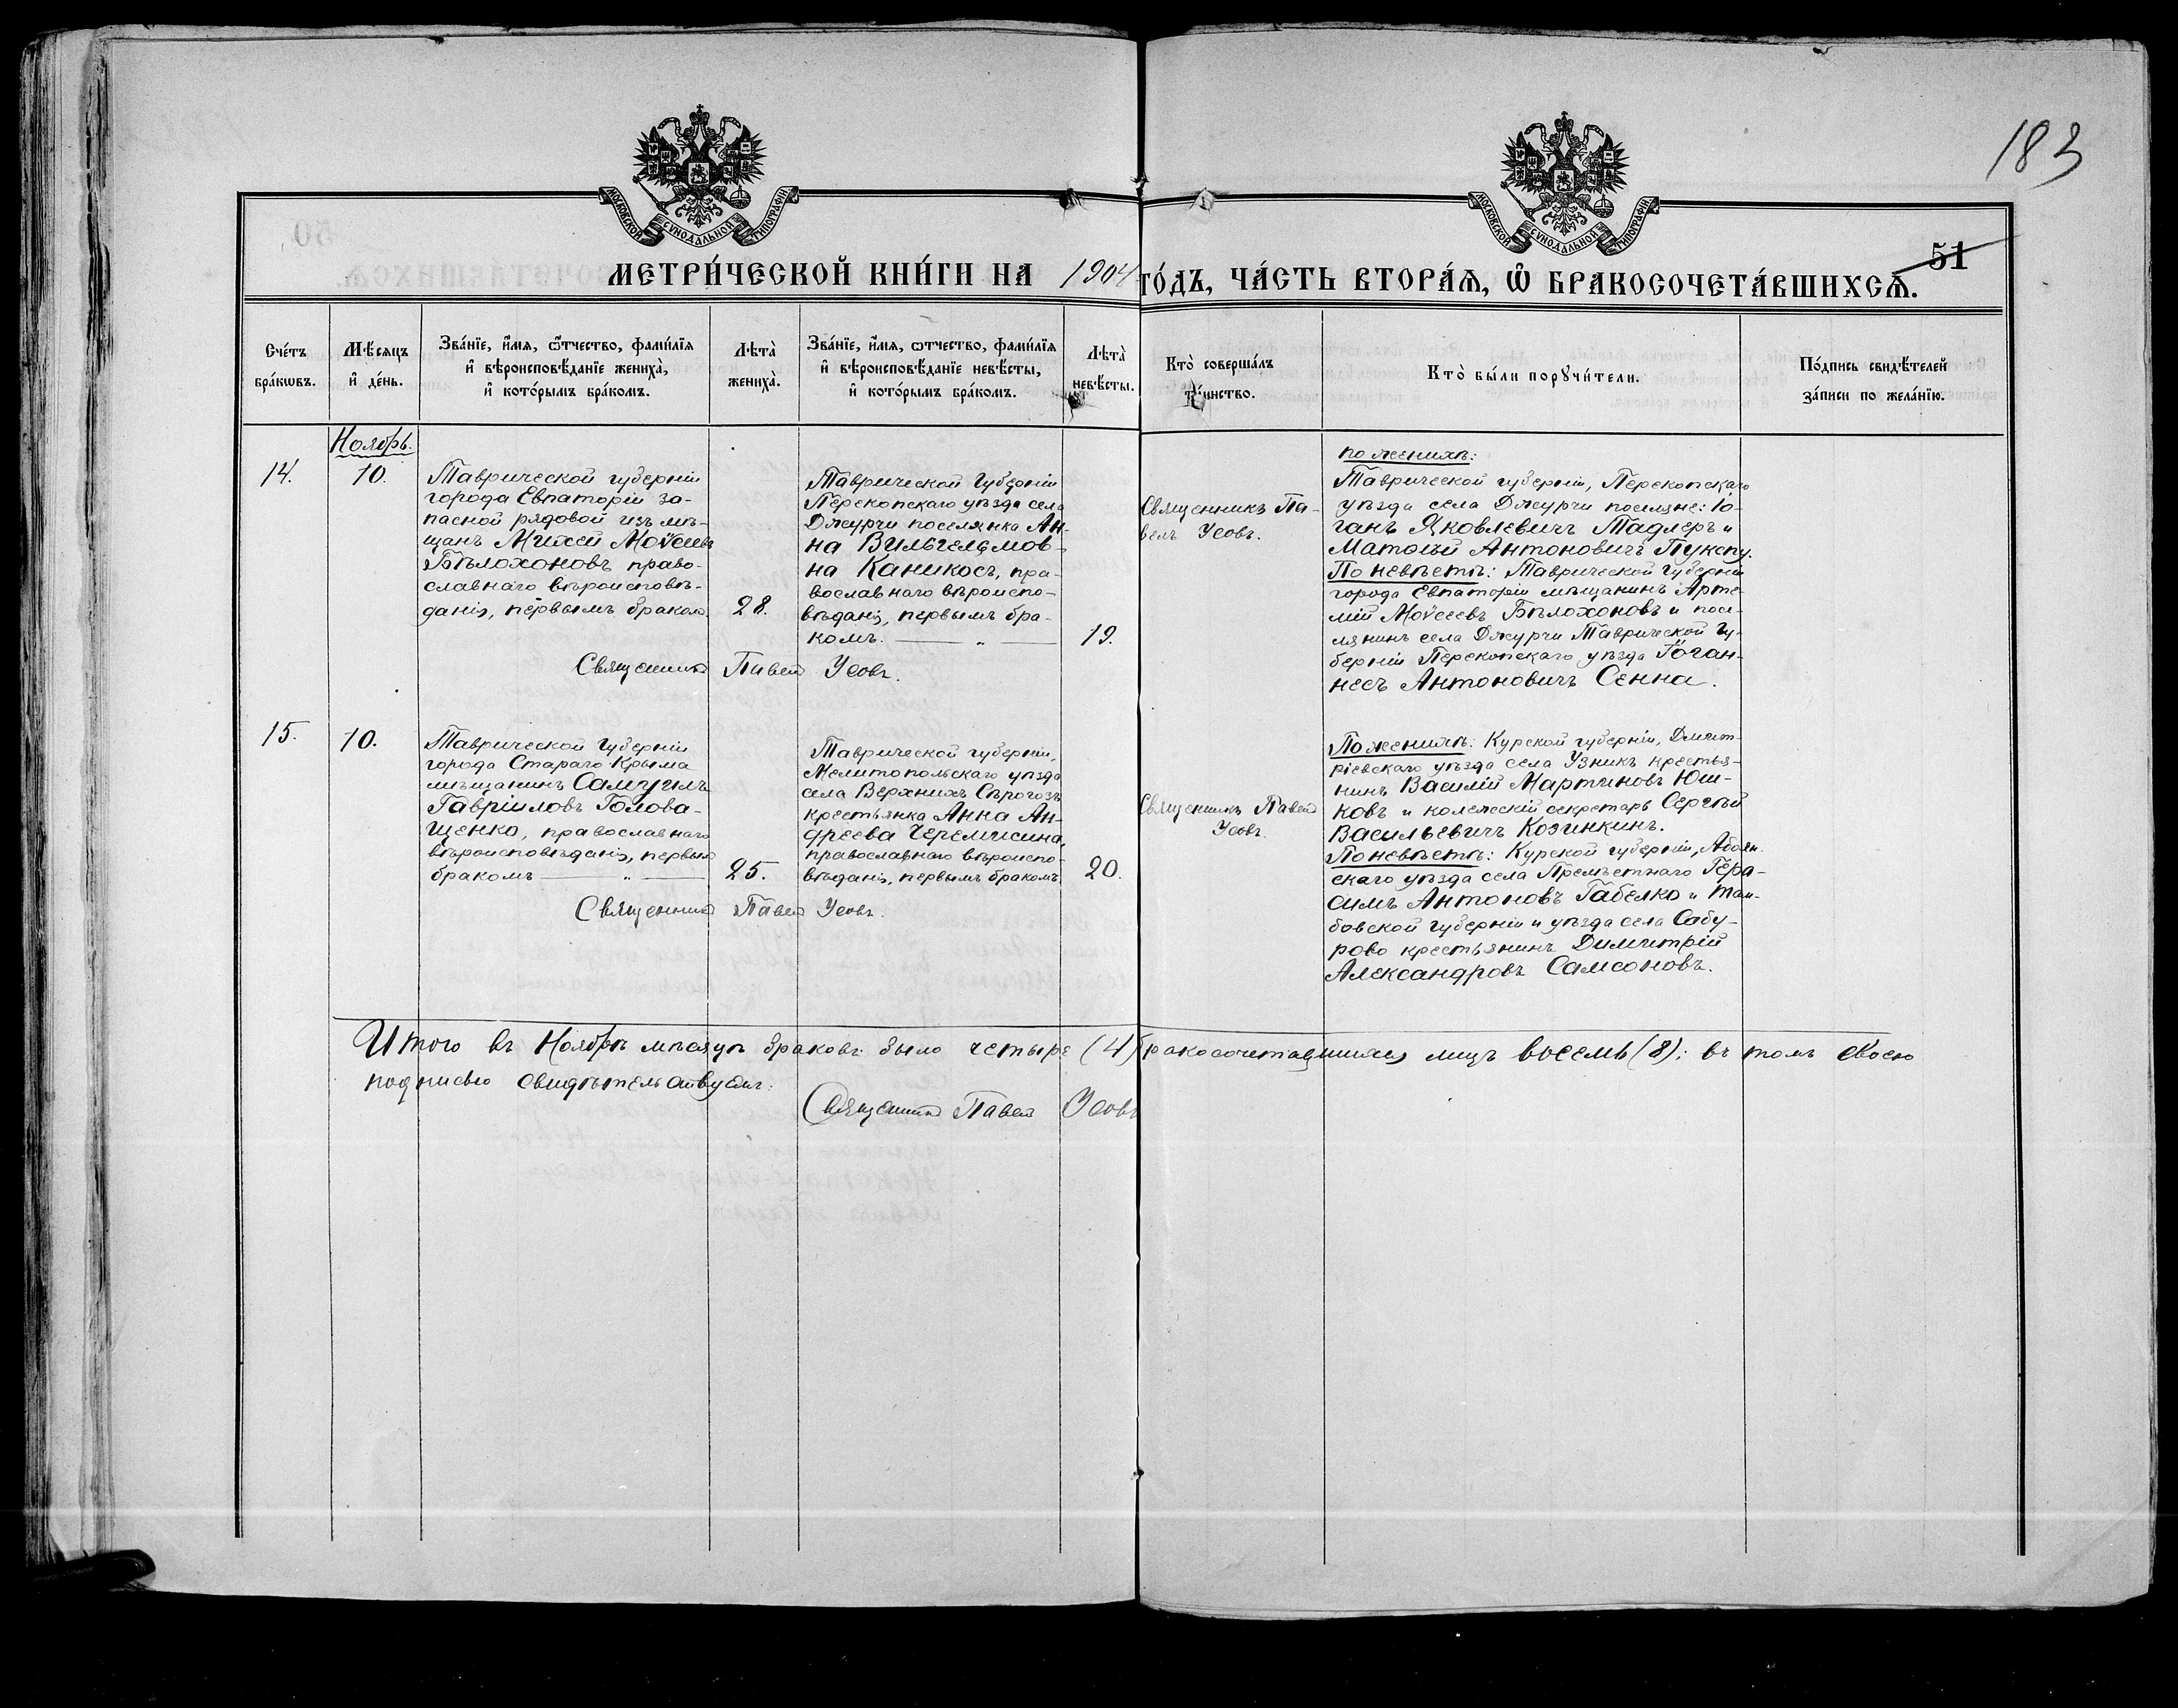 183
МОСКОВСКОЙ СУНОДАЛЬНОЙ ТИПОГРАФІИ
МОСКОВСКОЙ СУНОДАЛЬНОЙ ТИПОГРАФІИ
51
МЕТРИ́ЧЕСКОЙ КНИ́ГИ НА 1904 ГО́ДЪ, ЧА́СТЬ ВТОРА́Ѧ, Ѽ БРАКОСОЧЕТА́ВШИХСѦ.
Сче́тъ
бра́кѡвъ.
Мѣ́сяцъ
и҆ де́нь.
Зва́нїе, и҆́мя, ѻ҆́тчество, фами́лїя
и҆ вѣроисповѣ́данїе жениха̀,
и҆ кото́рымъ бра́комъ.
Лѣта̀
жениха̀.
Зва́нїе, и҆́мя, ѻтчество, фами́лїя
и҆ вѣроисповѣ́данїе невѣ́сты,
и҆ кото́рымъ бра́комъ.
Лѣта̀
невѣ́сты.
Кто̀ соверша́лъ
та́инство.
Кто̀ бы́ли порꙋчи́тели.
По́дпись свидѣ́телей
за́писи по жела́нїю.
Ноябрь.
14.
10.
Таврической губерніи
города Евпаторіи за-
пасной рядовой изъ мѣ-
щанъ Михей Моѵсеевъ
Бѣлохоновъ право-
славнаго вѣроисповѣ-
данія, первымъ бракомъ.
28.
Таврической Губерніи
Перекопскаго уѣзда села
Джурчи поселянка Ан-
на Вильгельмов-
на Каникосъ, пра-
вославнаго вѣроиспо-
вѣданія, первымъ бра-
комъ. — „ —
19.
Священникъ Павелъ Усовъ.
Священникъ Па-
велъ Усовъ.
по женихѣ:
Таврической губерніи, Перекопскаго
уѣзда села Джурчи поселяне: Іо-
ганъ Яковлевичъ Тадлеръ и
Матѳій Антоновичъ Пукспу.
По невѣстѣ: Таврической Губерніи
города Евпаторіи мѣщанинъ Арте-
мій Моѵсеевъ Бѣлохоновъ и посе-
лянинъ села Джурчи Таврической Гу-
берніи Перекопскаго уѣзда Іоган-
несъ Антоновичъ Сенна.
15.
10.
Таврической Губерніи
города Стараго Крыма
мѣщанинъ Самуилъ
Гавріиловъ Голова-
щенко, православнаго
вѣроисповѣданія, первымъ
бракомъ — „ —
25.
Таврической губерніи,
Мелитопольскаго уѣзда
села Верхнихъ Сѣрогозъ
крестьянка Анна Ан-
дреева Черемисина,
православнаго вѣроиспо-
вѣданія, первымъ бракомъ.
20.
Священникъ Павелъ Усовъ.
Священникъ Павелъ
Усовъ.
По женихѣ: Курской губерніи, Дмит-
ріевскаго уѣзда села Узникъ крестья-
нинъ Василій Мартиновъ Юш-
ковъ и колежскій секретарь Сергѣй
Васильевичъ Козинкинъ.
По невѣстѣ: Курской губерніи, Абоян-
скаго уѣзда села Премѣстнаго Гера-
симъ Антоновъ Габелко и Там-
бовской губерніи и уѣзда села Сабу-
рово крестьянинъ Димитрій
Александровъ Самсоновъ.
Итого въ Ноябрѣ мѣсяцѣ браковъ было четыре (4) бракосочетавшихся лицъ восемь (8); въ томъ своею
подписью свидѣтельствуемъ:
Священникъ Павелъ Усовъ